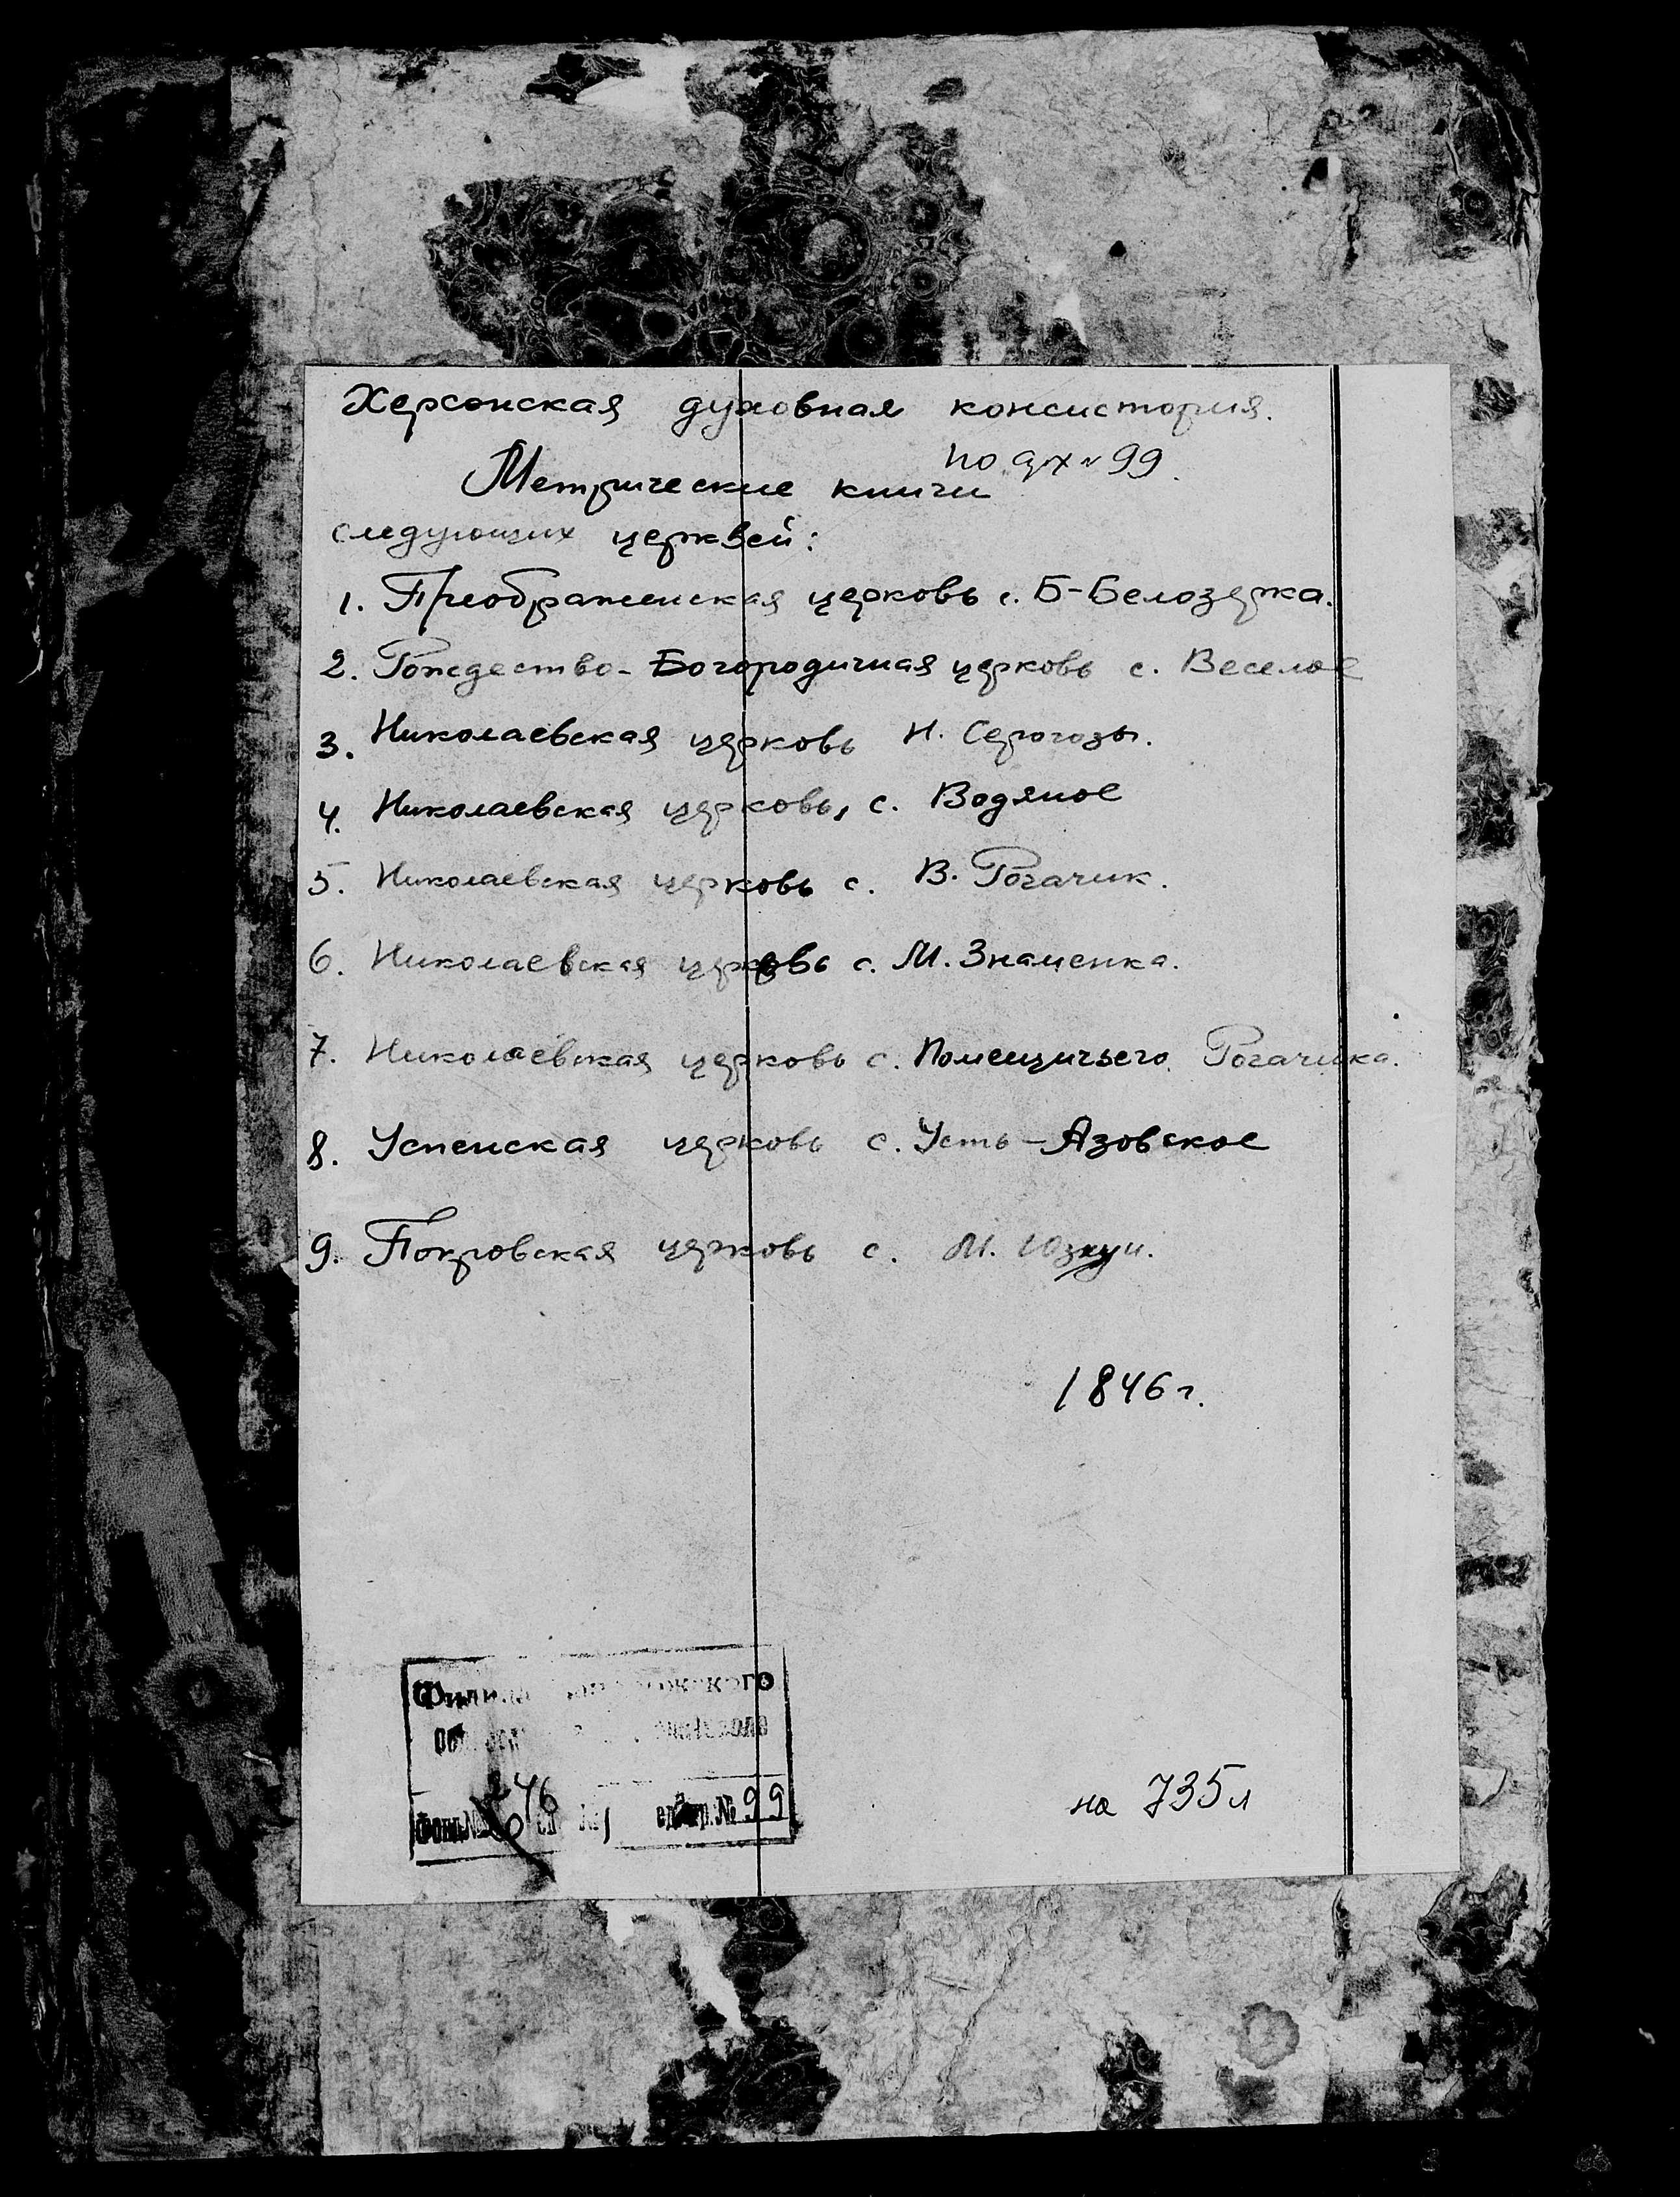 Херсонская духовная консистория.
по арх № 99.
Метрические книги
следующих церквей:
1. Преображенская церковь с. Б-Белозерка.
2. Рождество-Богородичная церковь с. Веселое
3. Николаевская церковь Н. Серогозы.
4. Николаевская церковь, с. Водяное
5. Николаевская церковь с. В. Рогачик.
6. Николаевская церковь с. М. Знаменка.
7. Николаевская церковь с. Помещичьего Рогачика.
8. Успенская церковь с. Усть-Азовское
9. Покровская церковь с. М. Юзкуи.
1846 г.
Филиал
№ 99
на 735 л